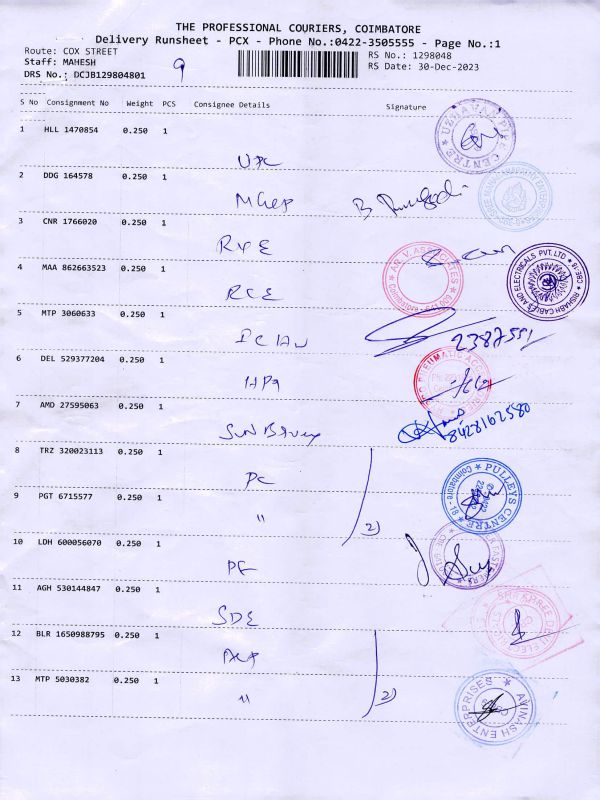 THE PROFESSIONAL COURIERS, COIMBATORE
Delivery Runsheet - PCX - Phone No.:0422-3505555 - Page No.:1
Route: COX STREET
RS No.: 1298048
Staff: MAHESH
RS Date: 30-Dec-2023
DRS No.: DCJB129804801
9
S No Consignment No Weight PCS Consignee Details Signature
1 HLL 1470854 0.250 1
UPC
UZHAVAN PIPE CENTRE
2 DDG 164578 0.250 1
3 CNR 1766020 0.250 1
RYE
AR. V. ASSOCIATES
Coimbatore - 641 009
RISHABH CABLES AND ELECTRICALS PVT. LTD CBE-18
4 MAA 862663523 0.250 1
RCE
5 MTP 3060633 0.250 1
2387551
6 DEL 529377204 0.250 1
HPA
PNEUMATIC
7 AMD 27595063 0.250 1
8428162580
8 TRZ 320023113 0.250 1
PC
PULLEYS CENTRE
Coimbatore - 18
9 PGT 6715577 0.250 1
"
2)
10 LDH 600056070 0.250 1
PF
11 AGH 530144847 0.250 1
SDE
12 BLR 1650988795 0.250 1
13 MTP 5030382 0.250 1
"
2)
AVINASH ENTERPRISES